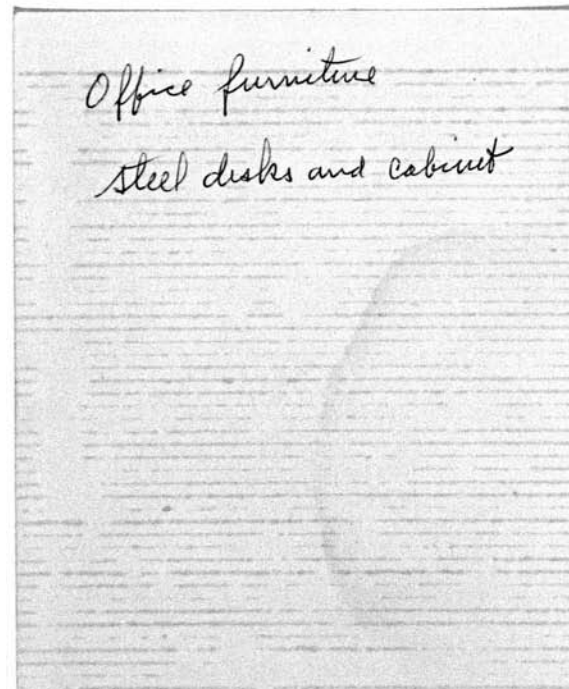 Office furniture
steel desks and cabinet